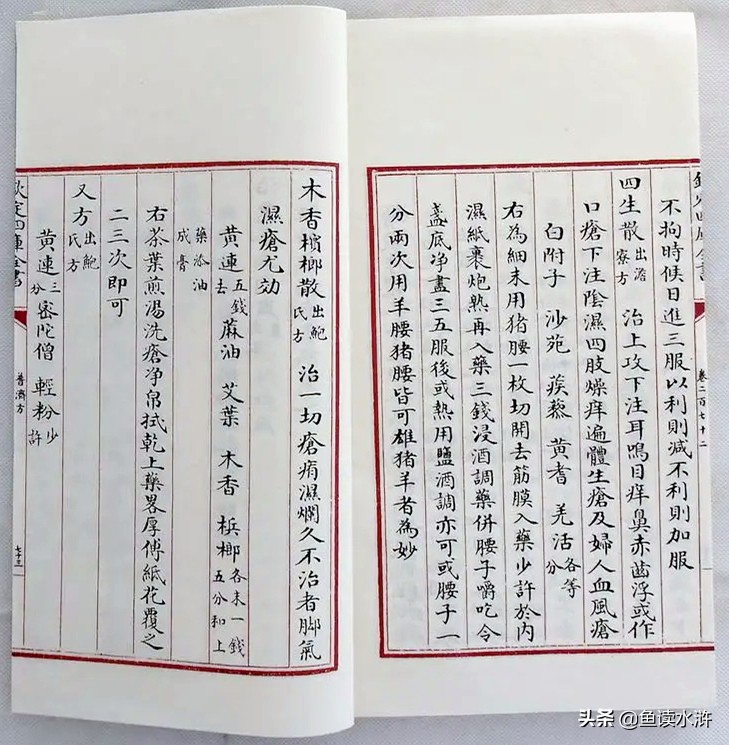 欽定四庫全書
卷二百七十二
不拘時候日進三服以利則減不利則加服
四生散出澹寮方 治上攻下注耳鳴目痒鼻赤齒浮或作
口瘡下注陰濕四肢燥痒遍體生瘡及婦人血風瘡
白附子 沙苑 蒺藜 黃耆 羌活各等分
右為細末用猪腰一枚切開去筋膜入藥少許於内
濕紙裹炮熟再入藥三錢浸酒調藥併腰子嚼吃令
盞底净盡三五服後或熱用鹽酒調亦可或腰子一
分兩次用羊腰猪腰皆可雄猪羊者為妙
木香檳榔散出鮑氏方 治一切瘡疥濕爛久不治者脚氣
濕瘡尤効
黄連五錢去 蔴油 艾葉 木香 梹榔各末一錢五分和上
藥添油成膏
右茶葉煎湯洗瘡净帛拭乾上藥畧厚傅紙花覆之
二三次即可
又方出鮑氏方
黄連三分 宻陀僧 輕粉少許
欽定四庫全書
普濟方
七十三
头条 @鱼读水浒